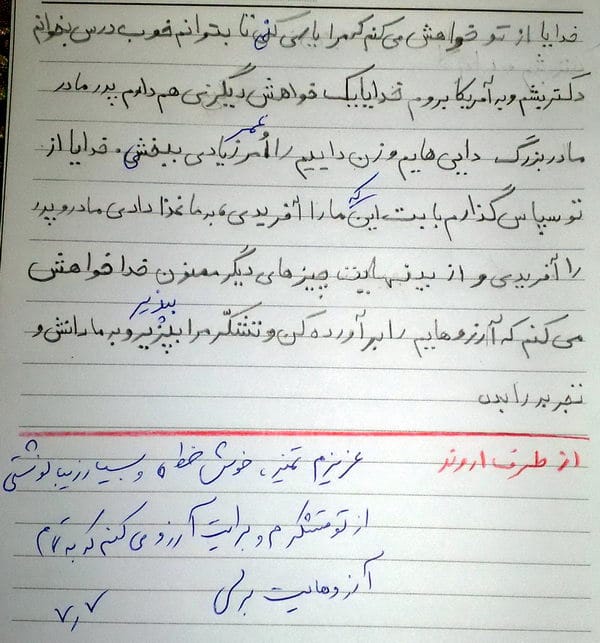 خدایا از تو خواهش می کنم که مرا یاری کنی تا بتوانم خوب درس بخوانم
دکتر بشم و به آمریکا بروم خدایا یک خواهش دیگر نی هم دارم پدر مادر
عمر
مادر بزرگ دایی هایم و زن داییم را اُمر زیادی ببخشی. خدایا از
تو سپاس گذارم بابت این که ما را آفریدی، به ما غذا دادی مادر و پدر
را آفریدی و از بی نهایت چیزهای دیگر ممنون خدا خواهش
بپذیر
می کنم که آرزوهایم را برآورده کن و تشکّر مرا بپژیر و به ما دانش و
تجربه را بدن
از طرف اروند
عزیزم تمیز، خوش خط و بسیار زیبا نوشتی
از تو متشکرم و برایت آرزو می کنم که به تمام
آرزوهایت برسی
۷٫۷